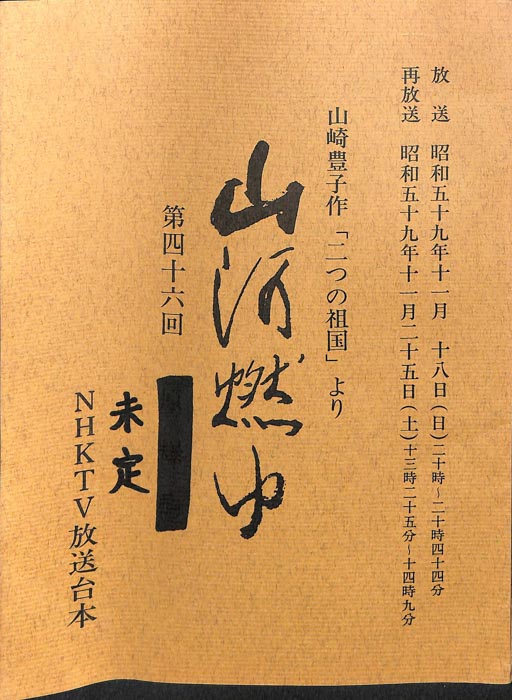 放送　昭和五十九年十一月　十八日(日)二十時～二十時四十四分
再放送　昭和五十九年十一月二十五日(土)十三時二十五分～十四時九分
山崎豊子作「二つの祖国」より
山河燃ゆ
第四十六回
未定
NHKTV放送台本